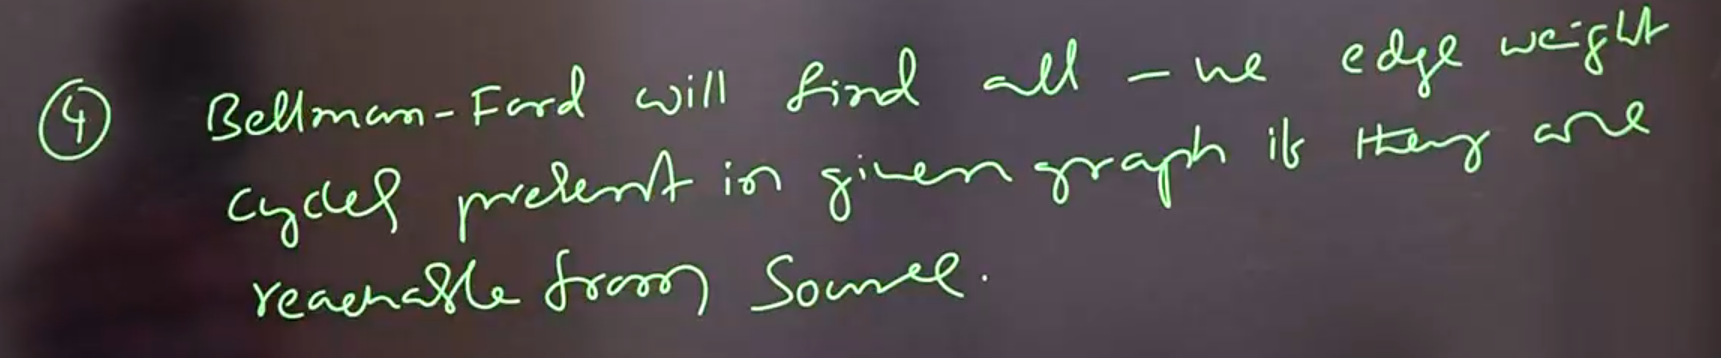 ④ Bellman-Ford will find all -ve edge weight
cycles present in given graph if they are
reachable from source.